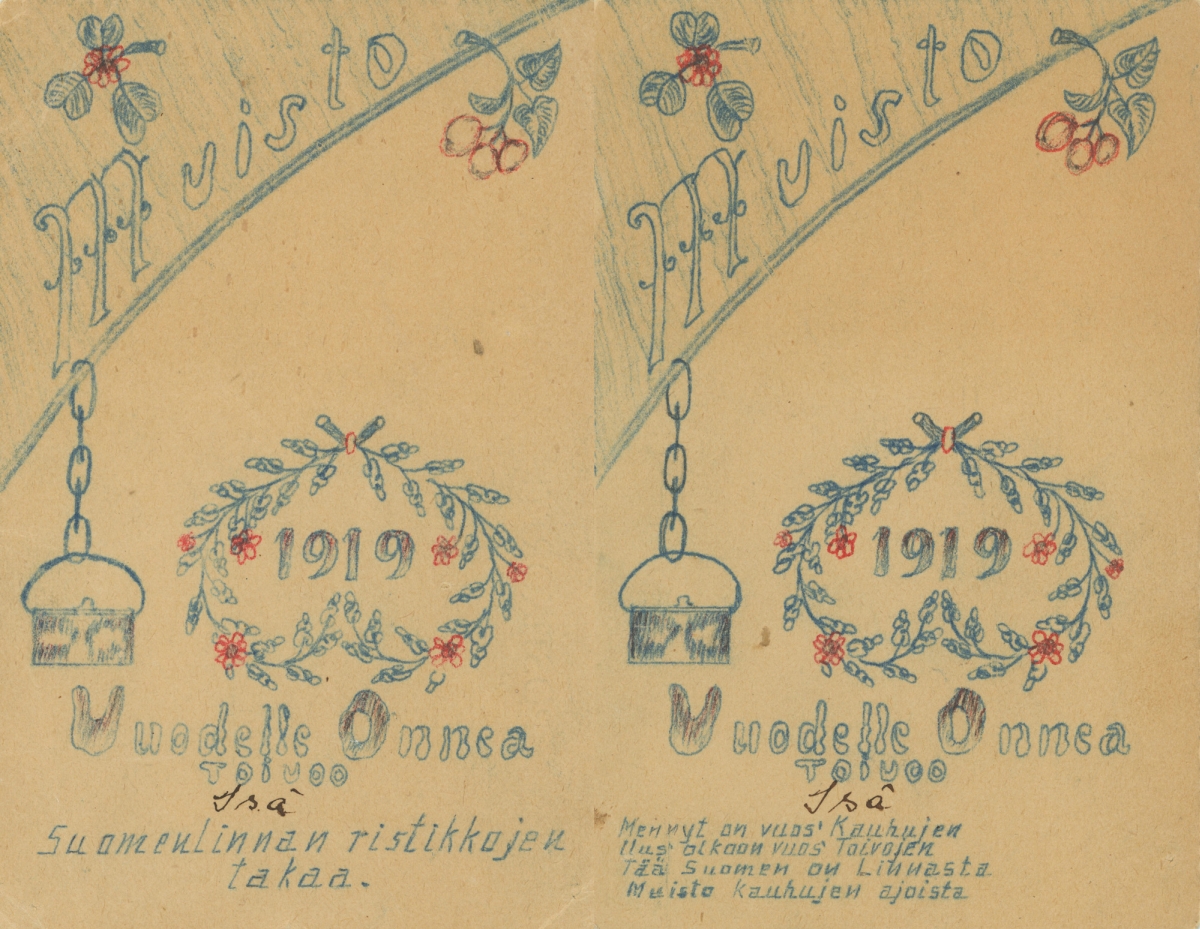 Muisto
1919
Vuodelle Onnea
Toivoo
Isä
Suomenlinnan ristikkojen
takaa.
Muisto
1919
Vuodelle Onnea
Toivoo
Isä
Mennyt on vuos' Kauhujen
Uus' olkoon vuos' Toivojen
Tää Suomen on Linnasta
Muisto kauhujen ajoista